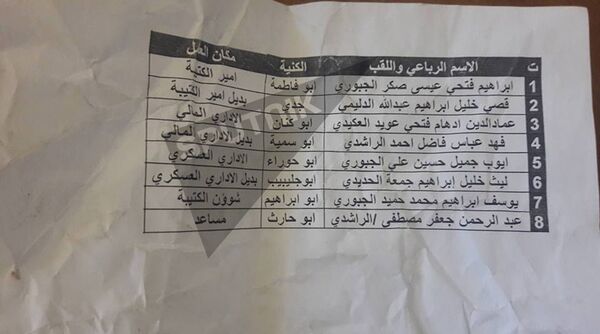 ت الاسم الرباعي واللقب الكنية مكان العمل
1 ابراهيم فتحي عيسى صكر الجبوري ابو فاطمة امير الكتيبة
2 قصي خليل ابراهيم عبدالله الدليمي جدي بديل امير الكتيبة
3 عمادالدين ادهام فتحي عويد العكيدي ابو كنان الاداري المالي
4 فهد عباس فاضل احمد الراشدي ابو سمية بديل الاداري المالي
5 ايوب جميل حسين علي الجبوري ابو حوراء الاداري العسكري
6 ليث خليل إبراهيم جمعة الحديدي ابوجليبيب بديل الاداري العسكري
7 يوسف ابراهيم محمد حميد الجبوري ابو ابراهيم شؤون الكتيبة
8 عبد الرحمن جعفر مصطفى /الراشدي ابو حارث مساعد
SPUTNIK